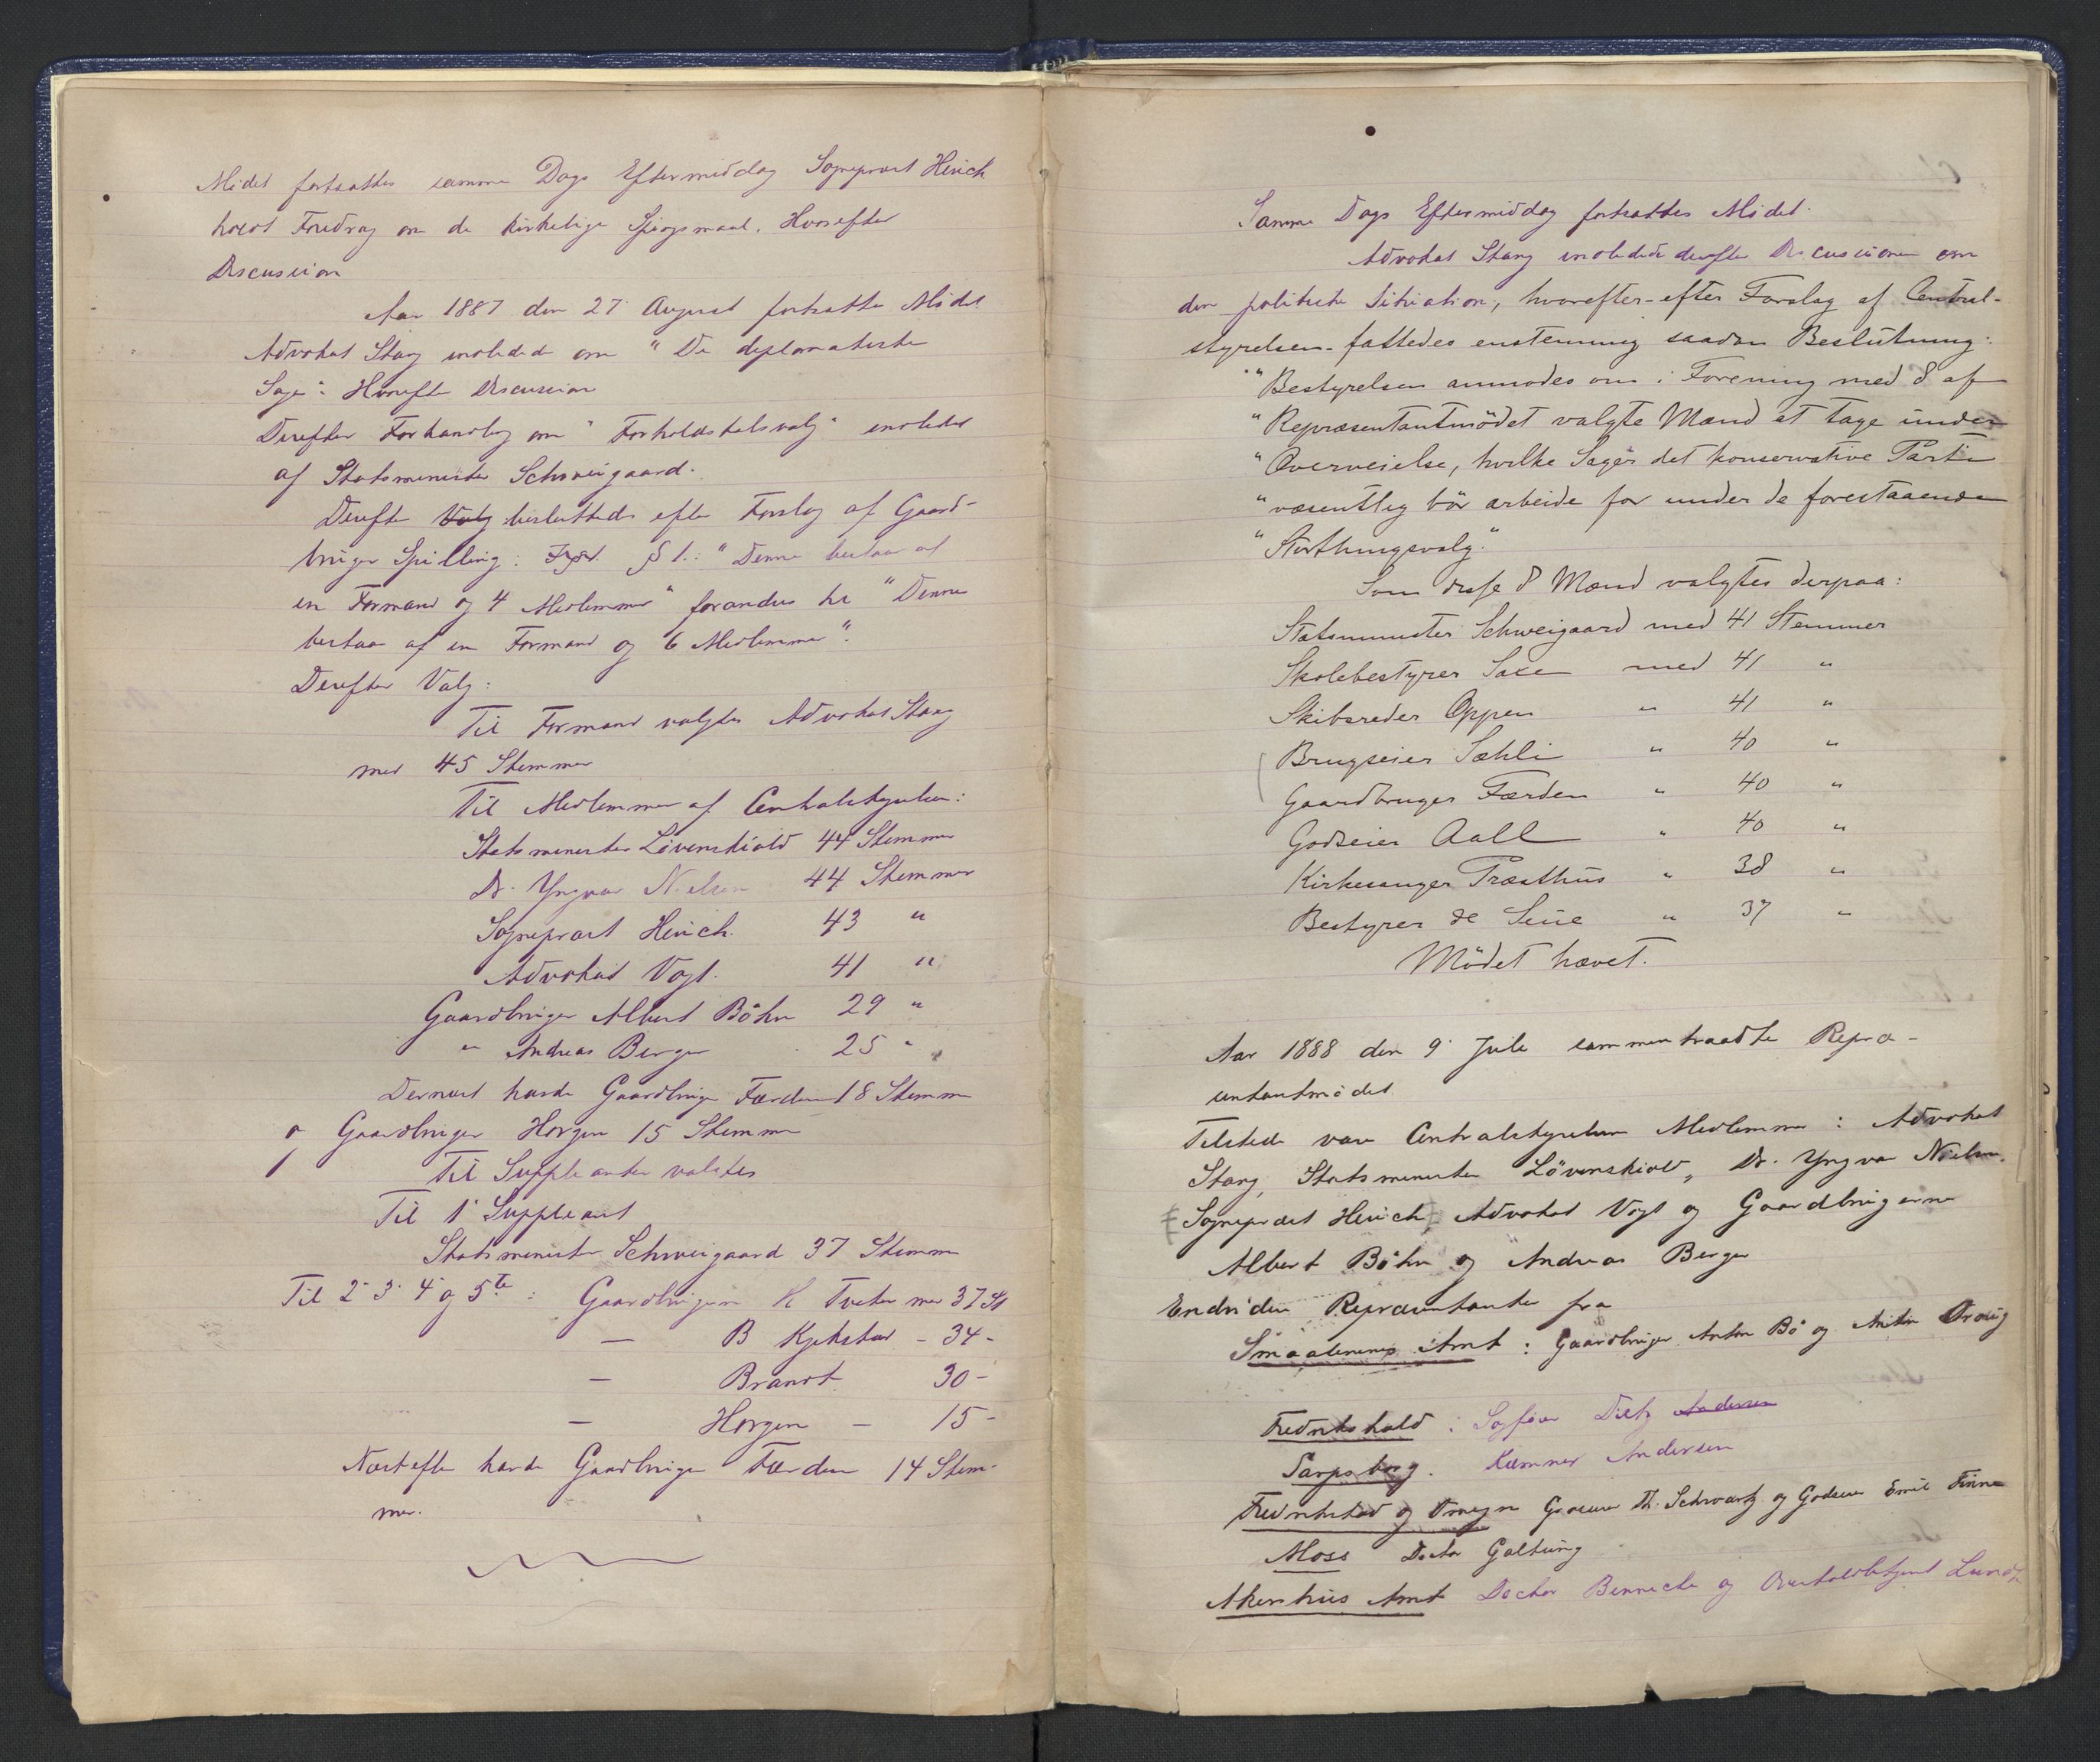 Mødet fortsattes samme Dags Eftermiddag Sogneprest Heuch
holdt Foredrag om de kirkelige Spørgsmaal. Hvorefter
Discussion
Aar 1887 den 27 August fortsatte Mødet
Advokat Stang indledede om "De diplomatiske
Sager" Hvorefter Discussion
Derefter Forhandling om "Forholdstalsvalg" indledet
af Statsminister Schweigaard.
Derefter Valg besluttedes efter Forslag af Gaard-
bruger Spilling: § 1.: "Denne bestaar af
en Formand og 4 Medlemmer" forandres til "Denne
bestaar af en Formand og 6 Medlemmer".
Derefter Valg:
Til Formand valgtes Advokat Stang
med 45 Stemmer
Til Medlemmer af Centralstyrelsen:
Statsminister Løvenskiold 44 Stemmer
Dr. Yngvar Nielsen 44 Stemmer
Sogneprest Heuch. 43 "
Advokat Vogt. 41 "
Gaardbruger Albert Bøhn 29 "
" Andreas Berger 25 "
Dernæst havde Gaardbruger Færden 18 Stemmer
og Gaardbruger Horgen 15 Stemmer
Til Suppleanter valgtes
Til 1' Suppleant
Statsminister Schweigaard 37 Stemmer
Til 2' 3' 4' og 5te: Gaardbrugerne K Tveter med 37 St
— B Kjekstad - 34 -
— Brandt 30 -
— Horgen — 15 -
Næstefter havde Gaardbruger Færden 14 Stem-
mer.
Samme Dags Eftermiddag fortsattes Mødet.
Advokat Stang indledede derefter Discussionen om
den politiske Situation, hvorefter - efter Forslag af Central-
styrelsen - fattedes enstemmig saadan Beslutning:
"Bestyrelsen anmodes om i Forening med 8 af
"Repræsentantmødet valgte Mænd at tage under
"Overveielse, hvilke Sager det konservative Parti
"væsentlig bør arbeide for under de forestaaende
"Storthingsvalg."
Som disse 8 Mænd valgtes derpaa:
Statsminister Schweigaard med 41 Stemmer
Skolebestyrer Saxe med 41 "
Skibsreder Oppen " 41 "
Brugseier Sæhli " 40 "
Gaardbruger Færden " 40 "
Godseier Aall " 40 "
Kirkesanger Præsthus " 38 "
Bestyrer de Seue " 37 "
Mødet hævet.
Aar 1888 den 9' Juli sammentraadte Repræ-
sentantmødet
Tilstede vare Centralstyrelsens Medlemmer: Advokat
Stang, Statsminister Løvenskiold, Dr. Yngvar Nielsen.
Sogneprest Heuch, Advokat Vogt og Gaardbrugerne
Albert Bøhn og Andreas Berger
Endvidere Repræsentanter fra
Smaalenenes Amt: Gaardbruger Anton Bø og
Fredrikshald: Sagfører Dietz Andersen
Sarpsborg. Kæmner Andersen
Fredrikstad og Omegn Th. Schwartz og Godseier Emil Finne
Moss Doctor Galtung
Akershus Amt Doctor Bennecke og Lund